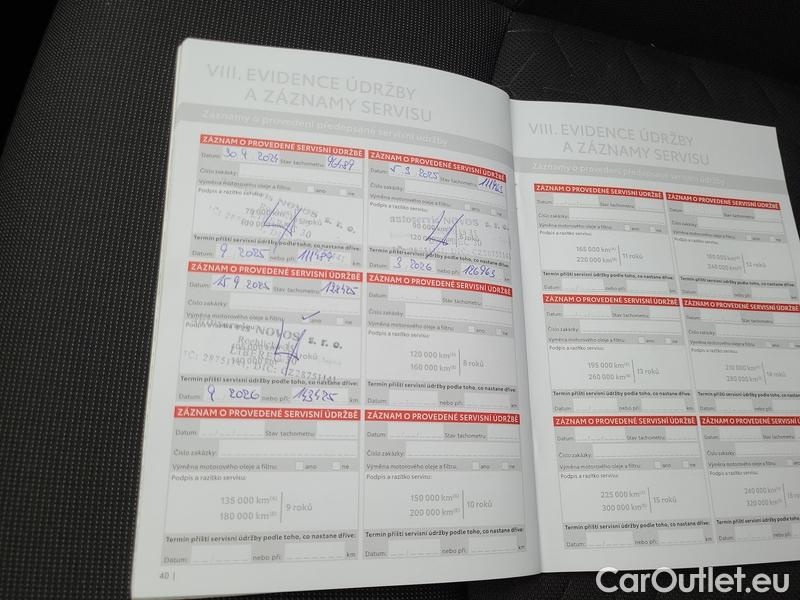 VIII. EVIDENCE ÚDRŽBY
A ZÁZNAMY SERVISU
Záznamy o provedení předepsané servisní údržby
ZÁZNAM O PROVEDENÉ SERVISNÍ ÚDRŽBĚ
Datum: 30.4.2024 Stav tachometru: 96489
Číslo zakázky:
Výměna motorového oleje a filtru: ano ne
Podpis a razítko servisu:
Termín příští servisní údržby podle toho, co nastane dříve:
9 2025 111489
ZÁZNAM O PROVEDENÉ SERVISNÍ ÚDRŽBĚ
Datum: 5.3.2025 Stav tachometru: 111963
Číslo zakázky:
Výměna motorového oleje a filtru: ano ne
Podpis a razítko servisu:
autoservis NOVOS s. r. o.
90 000 km
120 000 km
Termín příští servisní údržby podle toho, co nastane dříve:
3 2026 126963
ZÁZNAM O PROVEDENÉ SERVISNÍ ÚDRŽBĚ
Datum: 15 9 2025 Stav tachometru: 128425
Číslo zakázky:
Výměna motorového oleje a filtru: ano ne
NOVOS s. r. o.
LIBEREC 30
IČ: 28751141, DIČ: CZ28751141
Termín příští servisní údržby podle toho, co nastane dříve:
9 2026 143425 km
ZÁZNAM O PROVEDENÉ SERVISNÍ ÚDRŽBĚ
Datum: Stav tachometru:
Číslo zakázky:
Výměna motorového oleje a filtru: ano ne
Podpis a razítko servisu:
120 000 km(A)
160 000 km(B)
8 roků
Termín příští servisní údržby podle toho, co nastane dříve:
Datum: nebo při: km
ZÁZNAM O PROVEDENÉ SERVISNÍ ÚDRŽBĚ
Datum: Stav tachometru:
Číslo zakázky:
Výměna motorového oleje a filtru: ano ne
Podpis a razítko servisu:
135 000 km(A)
180 000 km(B)
9 roků
Termín příští servisní údržby podle toho, co nastane dříve:
Datum: nebo při: km
ZÁZNAM O PROVEDENÉ SERVISNÍ ÚDRŽBĚ
Datum: Stav tachometru:
Číslo zakázky:
Výměna motorového oleje a filtru: ano ne
Podpis a razítko servisu:
150 000 km(A)
200 000 km(B)
10 roků
Termín příští servisní údržby podle toho, co nastane dříve:
Datum: nebo při: km
40 |
VIII. EVIDENCE ÚDRŽBY
A ZÁZNAMY SERVISU
Záznamy o provedení předepsané servisní údržby
ZÁZNAM O PROVEDENÉ SERVISNÍ ÚDRŽBĚ
Datum: Stav tachometru:
Číslo zakázky:
Výměna motorového oleje a filtru: ano ne
Podpis a razítko servisu:
165 000 km(A)
220 000 km(B)
11 roků
Termín příští servisní údržby podle toho, co nastane dříve:
Datum: nebo při: km
ZÁZNAM O PROVEDENÉ SERVISNÍ
Datum: Stav tachometru:
Číslo zakázky:
Výměna motorového oleje a filtru:
Podpis a razítko servisu:
180 000 km(A)
240 000 km(B)
12 roků
Termín příští servisní údržby podle toho, co
Datum: nebo při:
ZÁZNAM O PROVEDENÉ SERVISNÍ ÚDRŽBĚ
Datum: Stav tachometru:
Číslo zakázky:
Výměna motorového oleje a filtru: ano ne
Podpis a razítko servisu:
195 000 km(A)
260 000 km(B)
13 roků
Termín příští servisní údržby podle toho, co nastane dříve:
Datum: nebo při: km
ZÁZNAM O PROVEDENÉ SERVISNÍ
Datum: Stav tachometru:
Číslo zakázky:
Výměna motorového oleje a filtru:
Podpis a razítko servisu:
210 000 km(A)
280 000 km(B)
14 roků
Termín příští servisní údržby podle toho, co
Datum: nebo při:
ZÁZNAM O PROVEDENÉ SERVISNÍ ÚDRŽBĚ
Datum: Stav tachometru:
Číslo zakázky:
Výměna motorového oleje a filtru: ano ne
Podpis a razítko servisu:
225 000 km(A)
300 000 km(B)
15 roků
Termín příští servisní údržby podle toho, co nastane dříve:
Datum: nebo při: km
ZÁZNAM O PROVEDENÉ SERVISNÍ
Datum: Stav tachometru:
Číslo zakázky:
Výměna motorového oleje a filtru:
Podpis a razítko servisu:
240 000 km(A)
320 000 km(B)
Termín příští servisní údržby podle toho,
Datum: nebo při:
CarOutlet.eu